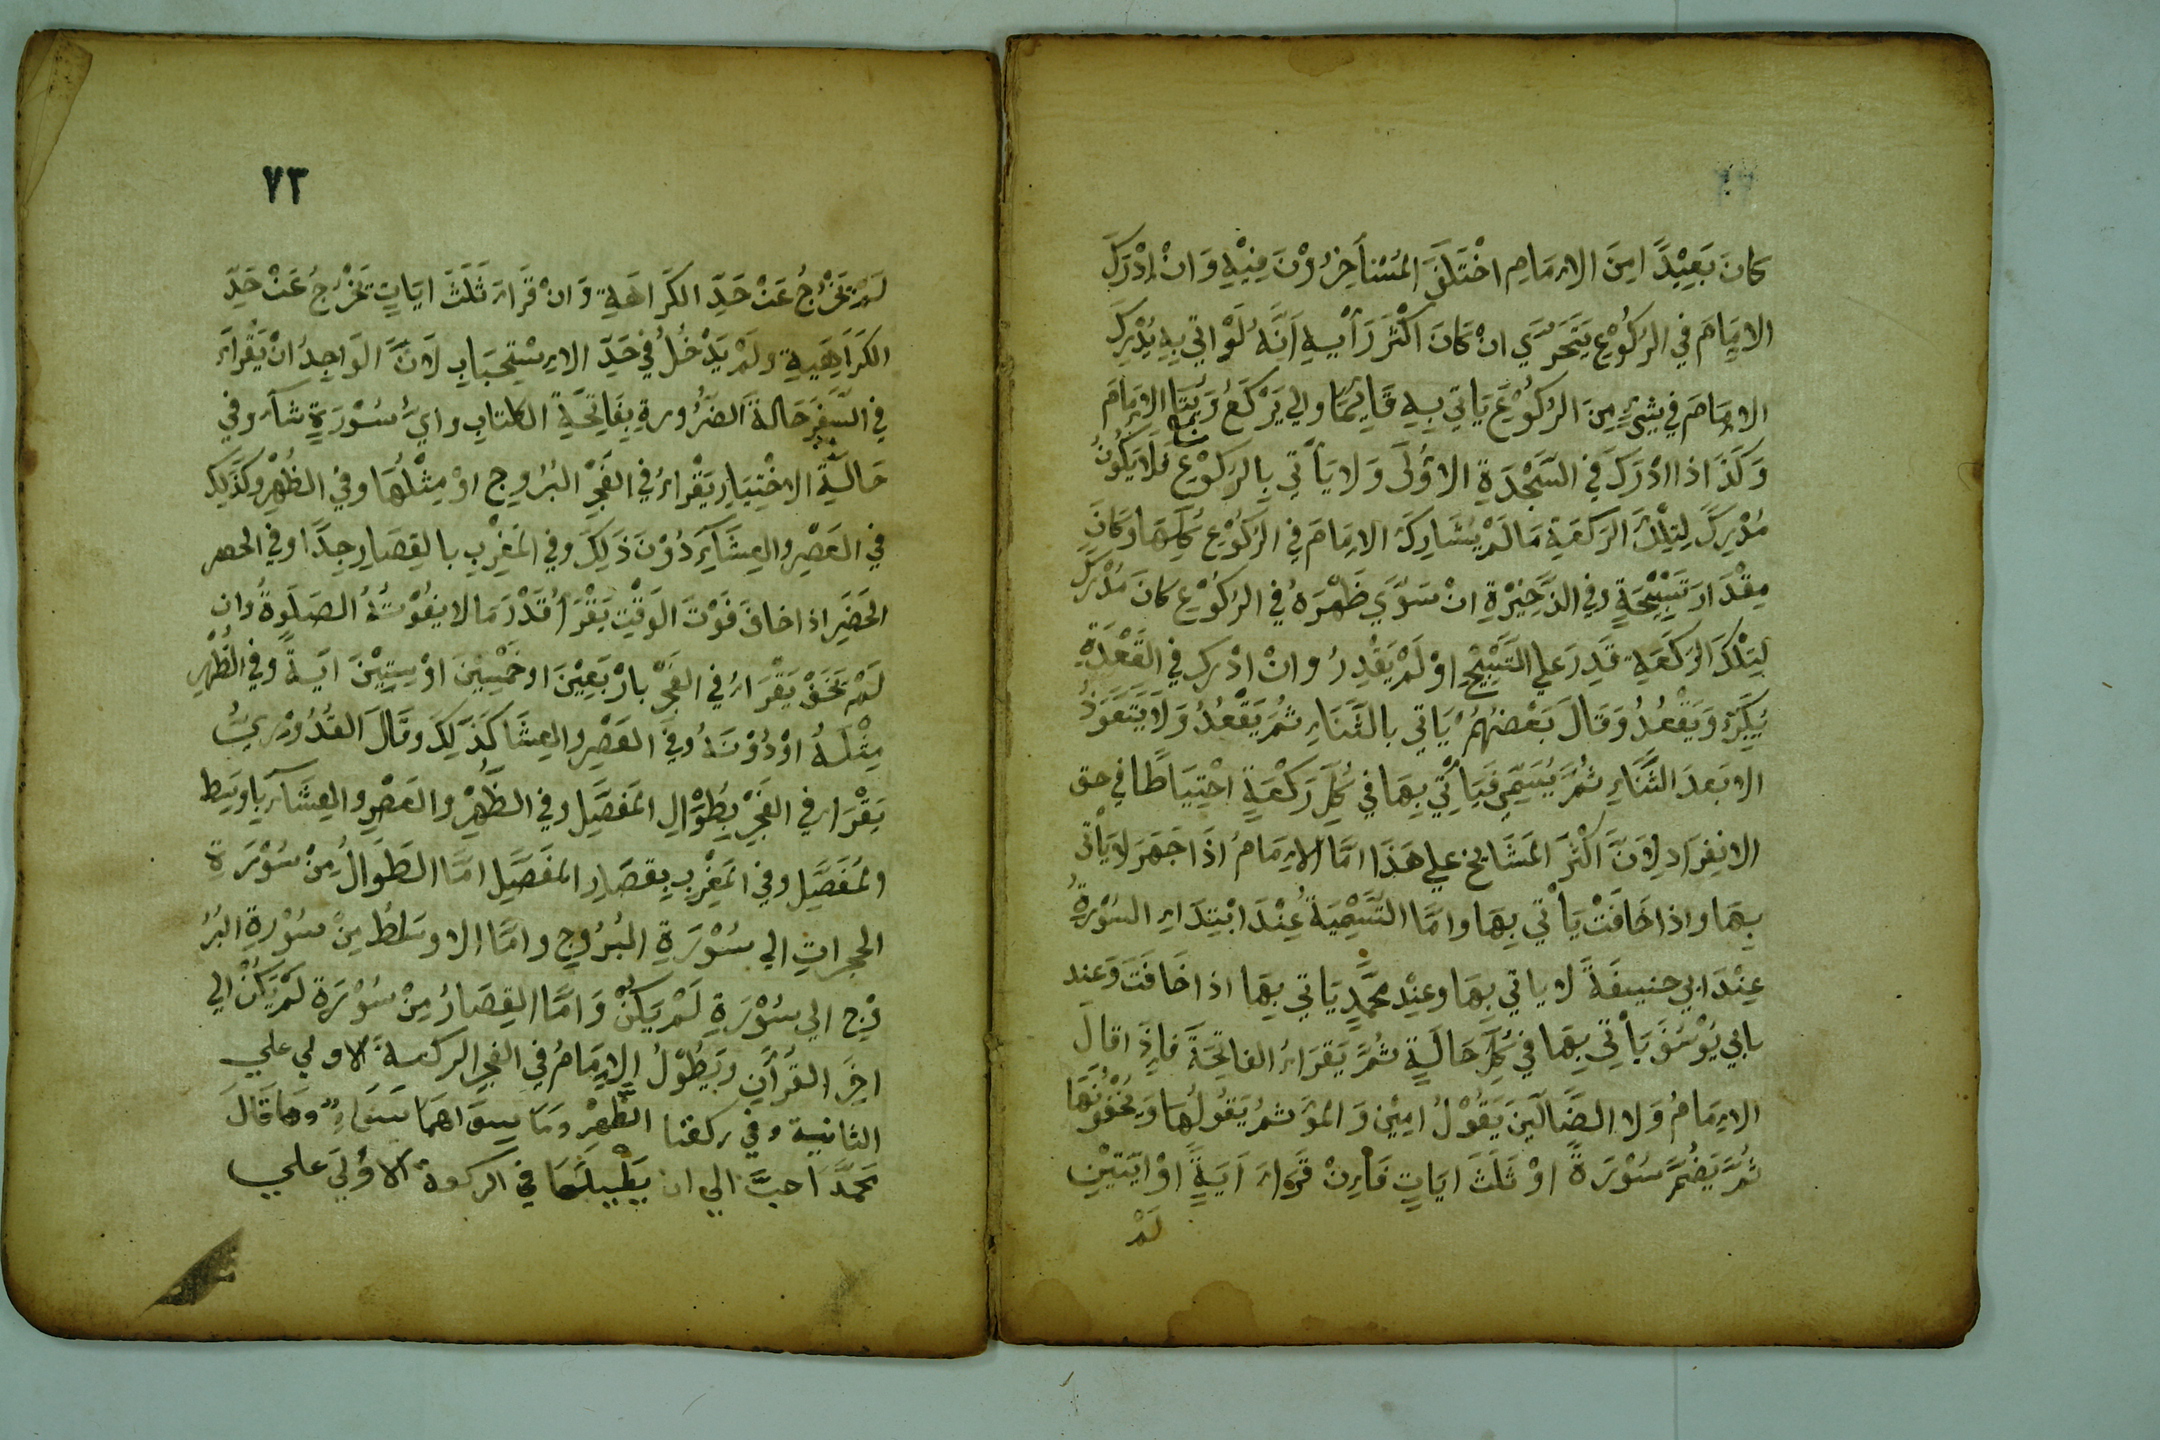 كانَ بَعِيْدًا مِنَ الاِمَامِ اخْتَلَفَ المُسْتأخِرُوْنَ فِيْهِ وَانْ اِدْرَكَ
الامَامَ في الرُكُوْعِ يَتَحَرَّي انْ كَانَ اكْثَرَ رَأيِهِ اَنَّهُ لَوْ اتي بِهِ يُدْرِكِ
الامَامَ في شَيْءٍ مِنَ الرُكُوْعِ يَاتي بِهِ قَائِمًا والي يَرْكَعُ وَيُتَابِعُ الاِمَامَ
وَكَذَا اذا ادْرَكَ في السَجْدَةِ الاوُلَى وَلا يَأتي بِالرَكُوْعِ فَلا يَكُونُ
مُدْرِكَ لِتِلْكَ الرَكعَةِ مَا لَمْ يُشَارِكْ الامَامَ في الرَكُوْعِ كُلِّهَا وَكانَ
مِقْدَارَ تَسْبِيْحَةٍ وفي الذَخِيْرَةِ انْ سَوَّي ظَهْرَهُ في الرُكُوْعِ كانَ مُدْرِكَ
لِتِلْكَ الرَكعَةِ قَدِرَ علي التَسْبِيْحِ اوْ لَمْ يَقْدِرُ وانْ ادْركَ في القَعْدَةِ
يُكَبِّرَ وَيَقْعُدُ وَقَالَ بَعْضُهُمُ يَاتي بالثَنَاءِ ثُمَّ يَقْعُدُ وَلا يَتَعَوَذُ
الا بَعدَ الثَنَاءِ ثُمَّ يُسَمِّي فَيَأتِي بِهَا في كُلِّ رَكْعَةٍ احْتِيَاطًا في حق
الانفِرَادِ لِانَّ اكْثَرَ المَشَايخِ علي هَذَا امَّا الامَامُ اذَا جَهَرَ لا يَأتي
بِهَا واذا خَافَتْ يَأتي بِهَا وامَّا التَسْمِيَةُ عِنْدَ ابْتِدَاءِ السُوْرةِ
عِنْدَ ابي حنيفَةَ لا ياتي بِهَا وعِنْد محمَّدٍ يَاتي بِهَا اذا خَافَتَ وَعند
بابي يُوْسُفَ يَأتِي بِهَا في كُلِّ حَالَةٍ ثُمَّ يَقرَاءُ الفاتِحَةَ فاِذَا قالَ
الامَامُ وَلا الضَالِّيْنَ يَقُوْلُ امِيْن وَالمُؤتمُ يَقُولُهَا وَيُخْفُونَهَا
ثُمَّ يَضُمَّ سُوْرَةً اوْ ثَلَثَ ايَاتٍ فَاِنْ قَراءَ اَيَةً اوْ ايَتَيْنِ
لَمْ
٧٣
لَمْ يَخْرُجُ عَنْ حَدِّ الكَرَاهَةِ وَانْ قَرَاءَ ثَلَثَ ايَاتٍ تَخْرُجُ عَنْ حَدِّ
الكَرَاهِيَةِ ولَمْ يَدْخُلُ في حَدِّ الاسْتِحْبَابِ لاَنَّ الوَاجِدُ انْ يَقْرَاءَ
في السَفَرِ حَالةَ الضَرُورةِ بِفَاتِحَةِ الكتابِ وايُّ سُوْرَةٍ شآءَ وفي
حَالَةِ الاخْتِيَارِ يَقْراءُ في الفَجْرِ البُرُوجِ اوْ مِثْلُهَا وفي الظُهْرِ وكَذَلِكَ
في العَصْرِ والعِشَآءِ دُوْنَ ذَلِكَ وفي المَغْرِبِ بالقِصَارِ جِدًّا وفي الحصر
الحَضَرِ اذا خافَ فَوْتَ الوَقْتِ يَقْرَأُ قَدْرَ مَا لا يفُوْتُهُ الصَلوةُ وان
لَمْ يَخَفْ يَقْرَاءُ في الفَجْرِ بارْبَعِيْنَ اوخَمْسِيْنَ اوْ سِتِيْنَ ايَةً وفي الظُهْرِ
مِثْلَهُ اوْ دُوْنَهُ وفي العَصْرِ والعِشَا كَذَلِكَ وقَالَ القُدُوْرِيُّ
يَقْرَاءُ في الفَجْرِ بِطِوَالِ المُفَصَّلِ وفي الظُهْرِ والعَصْرِ والعِشَآءِ باوسَطِ
المُفَصَّلِ وفي المَغْرِبِ بِقصَارِ المفَصَّلِ امَّا الطَوَالُ مِنْ سُوْرَةِ
الحجراتِ الي سُوْرَةِ البُرُوجِ وامَّا الاوسَطُ مِنْ سُوْرةِ البُرُ
وْجِ الي سُوْرَةِ لَمْ يَكُنْ وَامَّا القِصَارُ مِنْ سُوْرَةِ لَمْ يَكُنْ الي
اخِرِ القُرْأنِ ويَطُوْلُ الاِمَامُ في الفجرِ الركعةَ الاولي علي
الثانية وفي ركعتا الظُهْرِ وَمَا سِوَاهمَا سَوَاءٌ وما قَالَ
محَمَّد احبَّ الي ان يَطِيْلَهَا في الركعةِ الاوُلَي علي